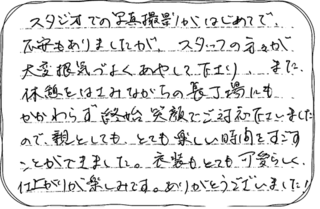 スタジオでの写真撮影がはじめてで、
不安もありましたが、スタッフの方々が
大変根気づよくあやして下さり、また、
休憩をはさみながらの長丁場にも
かかわらず終始笑顔でご対応下さいました
ので、親としても、とても楽しい時間をすごす
ことができました。衣装も、とても可愛らしく、
仕上がりが楽しみです。ありがとうございました!